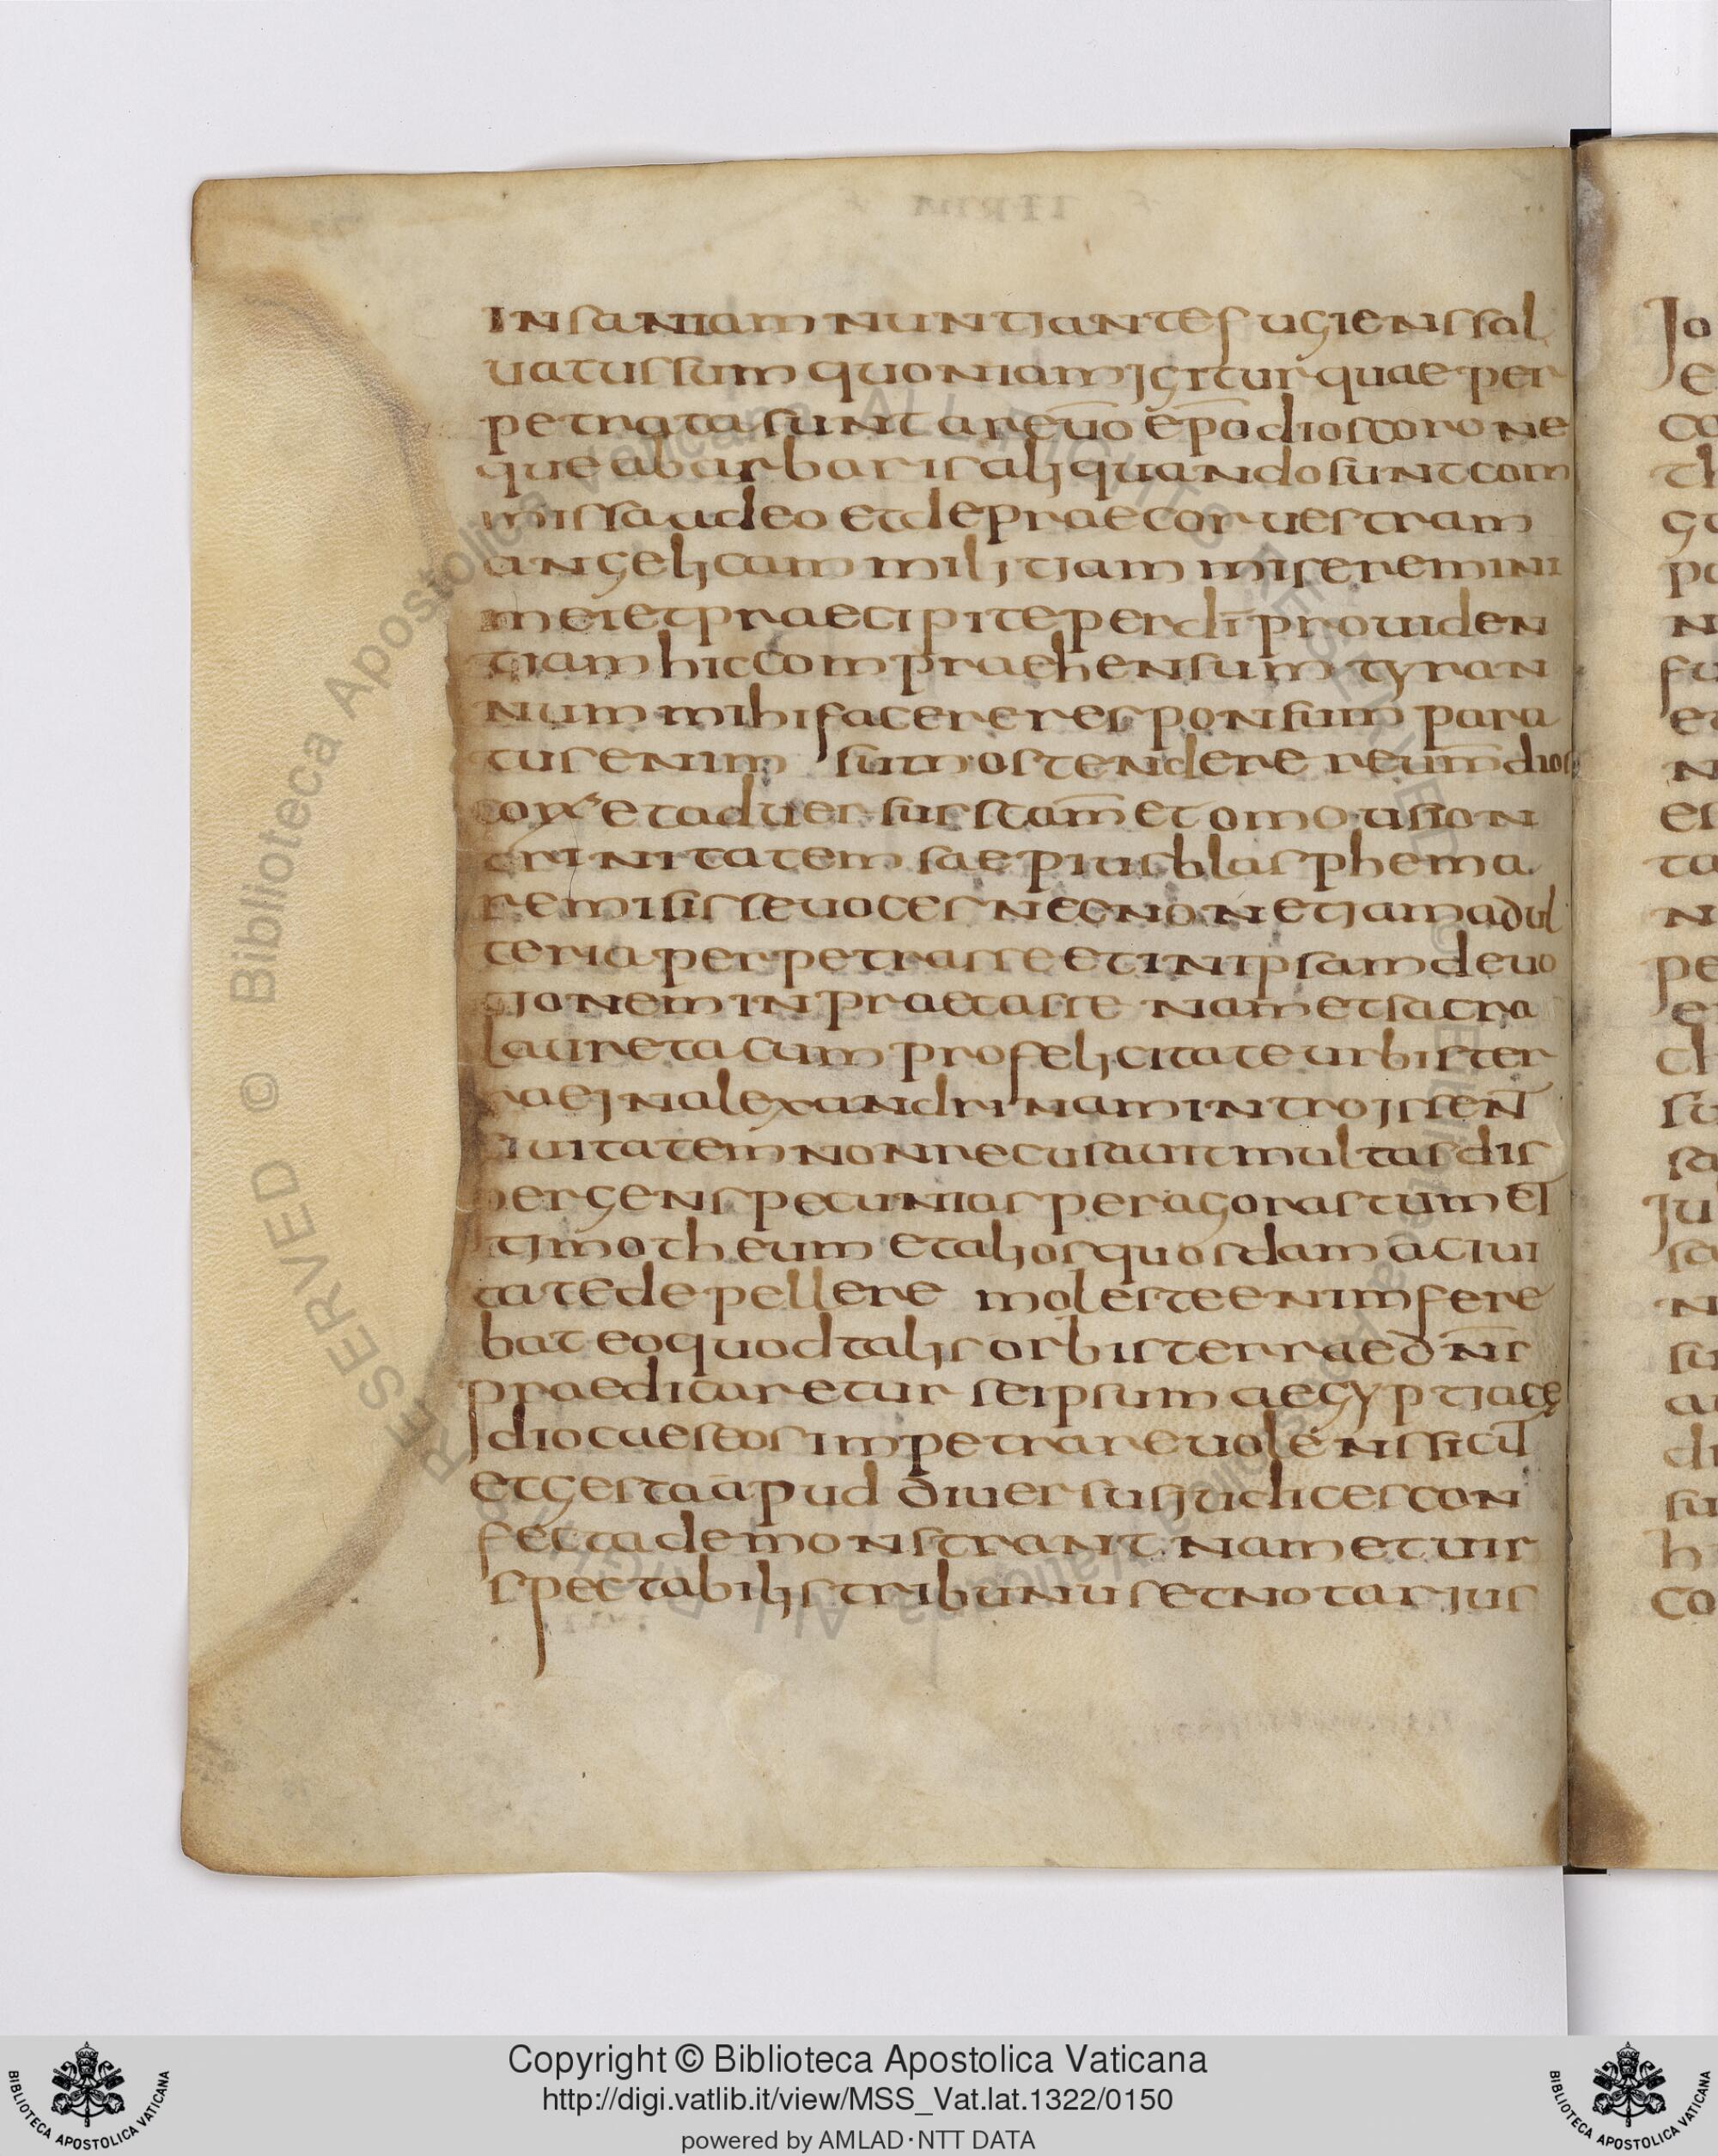 insaniam nuntiante fugiens sal
uatus sum quoniam igitur quae per
petrata sunt a reūo ep̄o dioscoro ne
que a barbaris aliquando sunt com
missa adeo et depraecor uestram
angelicam militiam miseremini
mei et praecipite per dī prouiden
tiam hic compraehensum tyran
num mihi facere responsum para
tus enim sum ostendere reum̄ dios
et aduersus scam̄ et omousion
trinitatem saepius blasphema
s emisisse uoces necnon etiam adul
teria perpetrasse et in ipsam deuo
tionem inpraetasse nam et sacra
laureta cum pro felicitate urbis ter
rae in alexandrinam introissen̄
ciuitatem non recusauit multas dis
pergens pecunias per agoras tum el
timotheum et alios quosdam a ciui
tate depellere moleste enim fere
bat eo quod talis orbis terrae d n̄s
praedicaretur se ipsum aegyptiace
diocaeseos impetrare uolens sicut
et gesta apud diuersus iudices con
fecta demonstrant nam et uir
spectabilis tribunus et notarius
RESERVED © Biblioteca Apostolica Vaticana ALL RIGHTS RESERVED © Biblioteca Apostolica Vaticana ALL RIGHTS
Copyright © Biblioteca Apostolica Vaticana
http://digi.vatlib.it/view/MSS_Vat.lat.1322/0150
powered by AMLAD·NTT DATA
BIBLIOTECA APOSTOLICA VATICANA
BIBLIOTECA APOSTOLICA VATICANA